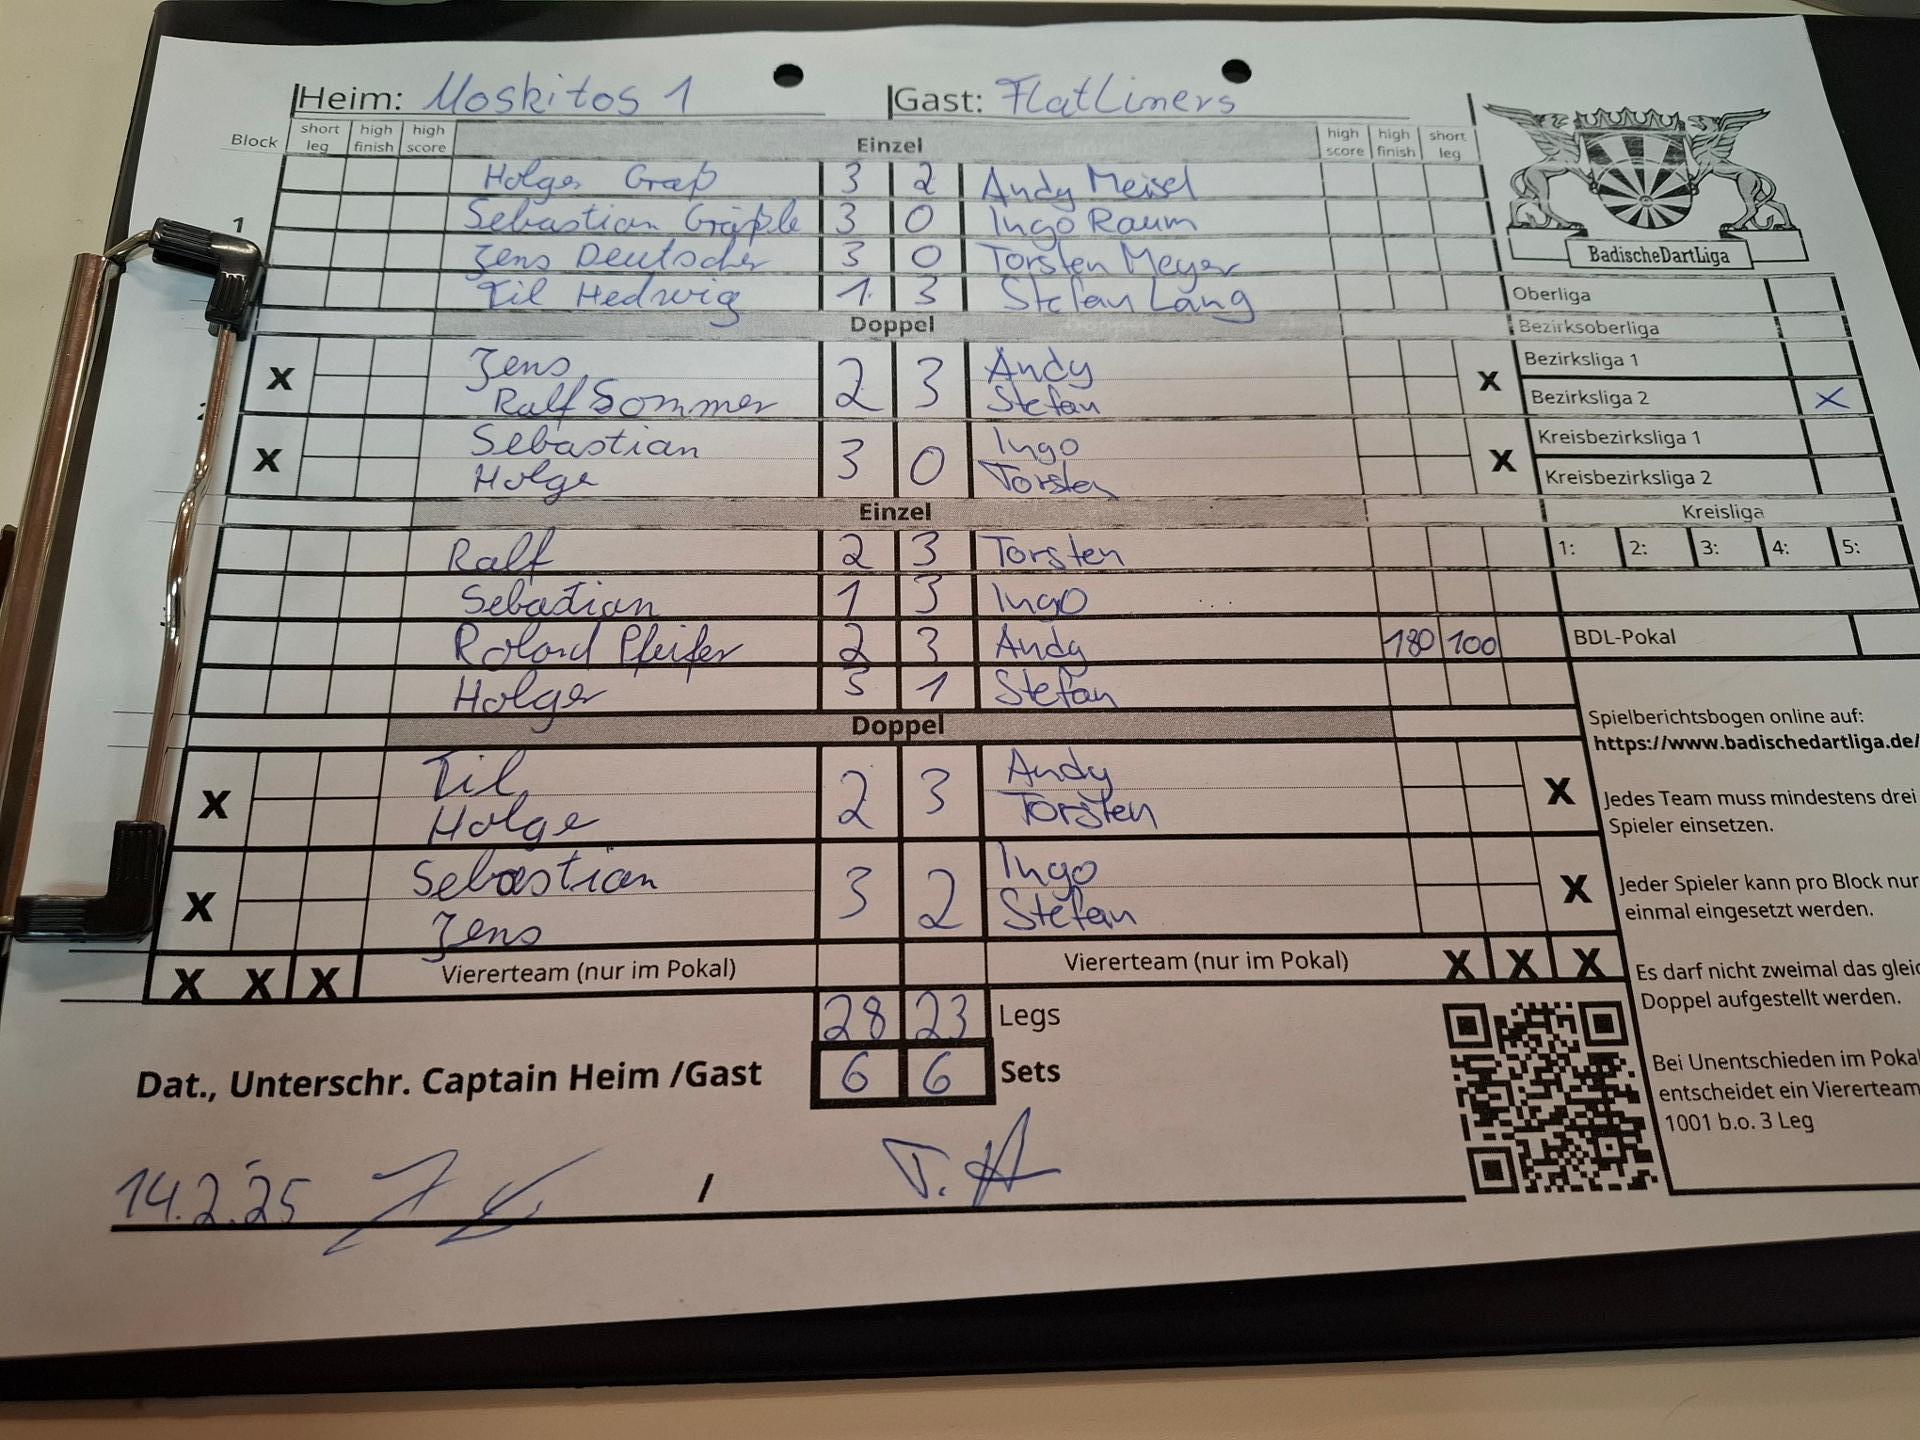 Heim: Moskitos 1 Gast: FlatLiners
Block short leg high finish high score Einzel high score high finish short leg
Holger Graß 3 2 Andy Meisel
1 Sebastian Gräßle 3 0 Ingo Raum
Jens Deutscher 3 0 Torsten Meyer
Til Hedwig 1 3 Stefan Lang
Doppel
X Jens 2 3 Andy X
Ralf Sommer Stefan
X Sebastian 3 0 Ingo X
Holge Torsten
Einzel
Ralf 2 3 Torsten
Sebastian 1 3 Ingo
Roland Pfeifer 2 3 Andy 180 100
Holger 3 1 Stefan
Doppel
X Til 2 3 Andy X
Holge Torsten
X Sebastian 3 2 Ingo X
Jens Stefan
X X X Viererteam (nur im Pokal) Viererteam (nur im Pokal) X X X
28 23 Legs
Dat., Unterschr. Captain Heim /Gast 6 6 Sets
14.2.25 /
BadischeDartLiga
Oberliga
Bezirksoberliga
Bezirksliga 1
Bezirksliga 2 X
Kreisbezirksliga 1
Kreisbezirksliga 2
Kreisliga
1: 2: 3: 4: 5:
BDL-Pokal
Spielberichtsbogen online auf:
https://www.badischedartliga.de/
Jedes Team muss mindestens drei
Spieler einsetzen.
Jeder Spieler kann pro Block nur
einmal eingesetzt werden.
Es darf nicht zweimal das gleic
Doppel aufgestellt werden.
Bei Unentschieden im Pokal
entscheidet ein Viererteam
1001 b.o. 3 Leg